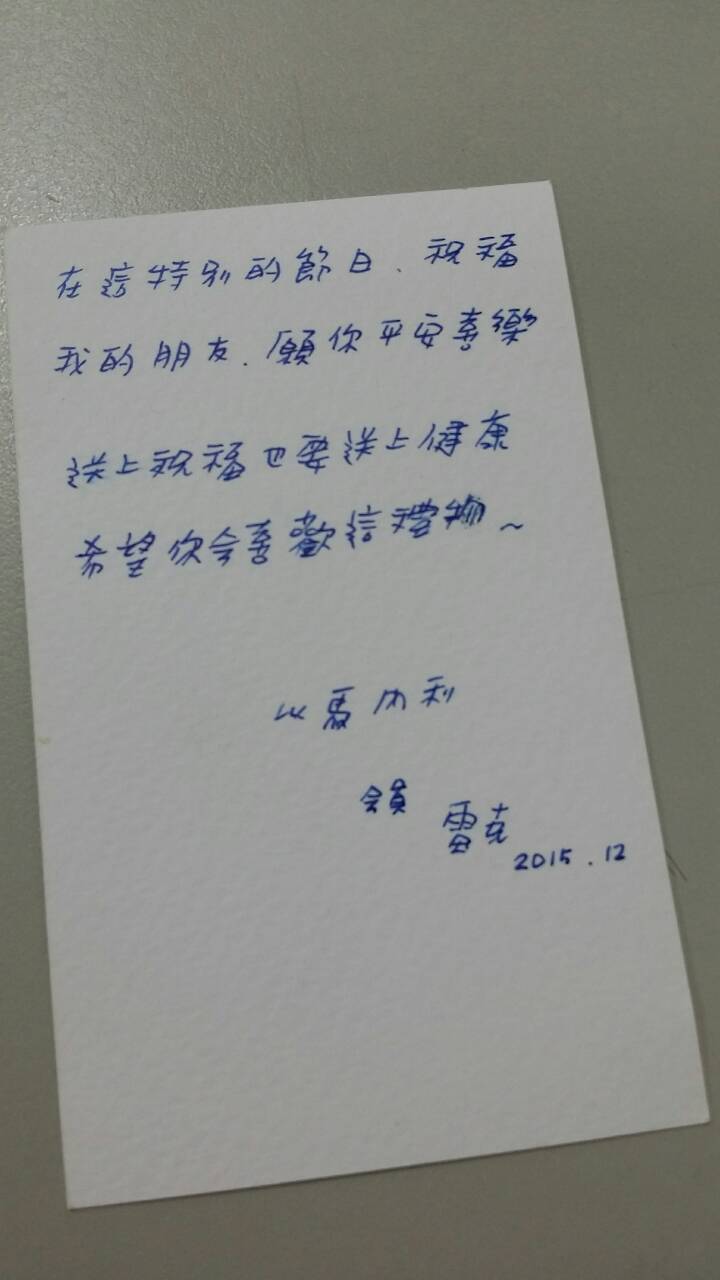 在這特別的節日、祝福
我的朋友、願你平安喜樂
送上祝福也要送上健康
希望你會喜歡這禮物~
以馬內利
會員 雷克
2015.12